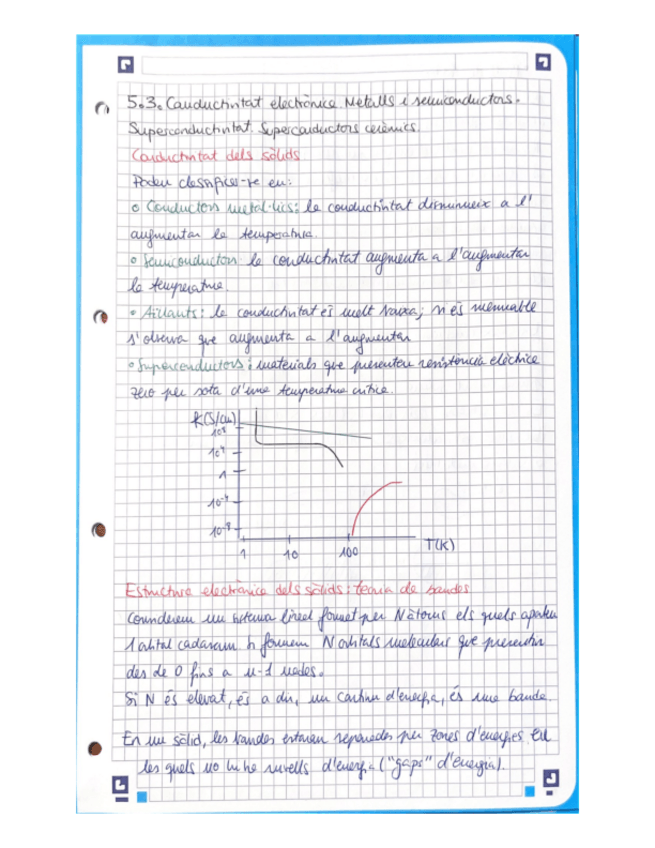 5.3. Conductivitat electrònica. Metalls i semiconductors.
Superconductivitat. Superconductors ceràmics.
Conductivitat dels sòlids
Poden classificar-se en:
• Conductors metal·lics: la conductivitat disminueix a l'
augmentar la temperatura.
• Semiconductors: la conductivitat augmenta a l'augmentar
la temperatura.
• Aïllants: la conductivitat és molt baixa; si és mesurable
s'observa que augmenta a l'augmentar
• Superconductors: materials que presenten resistència elèctrica
zero per sota d'una temperatura crítica.
K(S/cm)
10⁸
10⁴
1
10⁻⁴
10⁻⁸
1 10 100 T(K)
Estructura electrònica dels sòlids: teoria de bandes
Considerem un sistema lineal format per N àtoms els quals aporten
1 orbital cadascun formen N orbitals moleculars que presenten
des de 0 fins a n-1 nodes.
Si N és elevat, és a dir, un continu d'energia, és una banda.
En un sòlid, les bandes estaran separades per zones d'energies en
les quals no hi ha nivells d'energia ("gaps" d'energia).